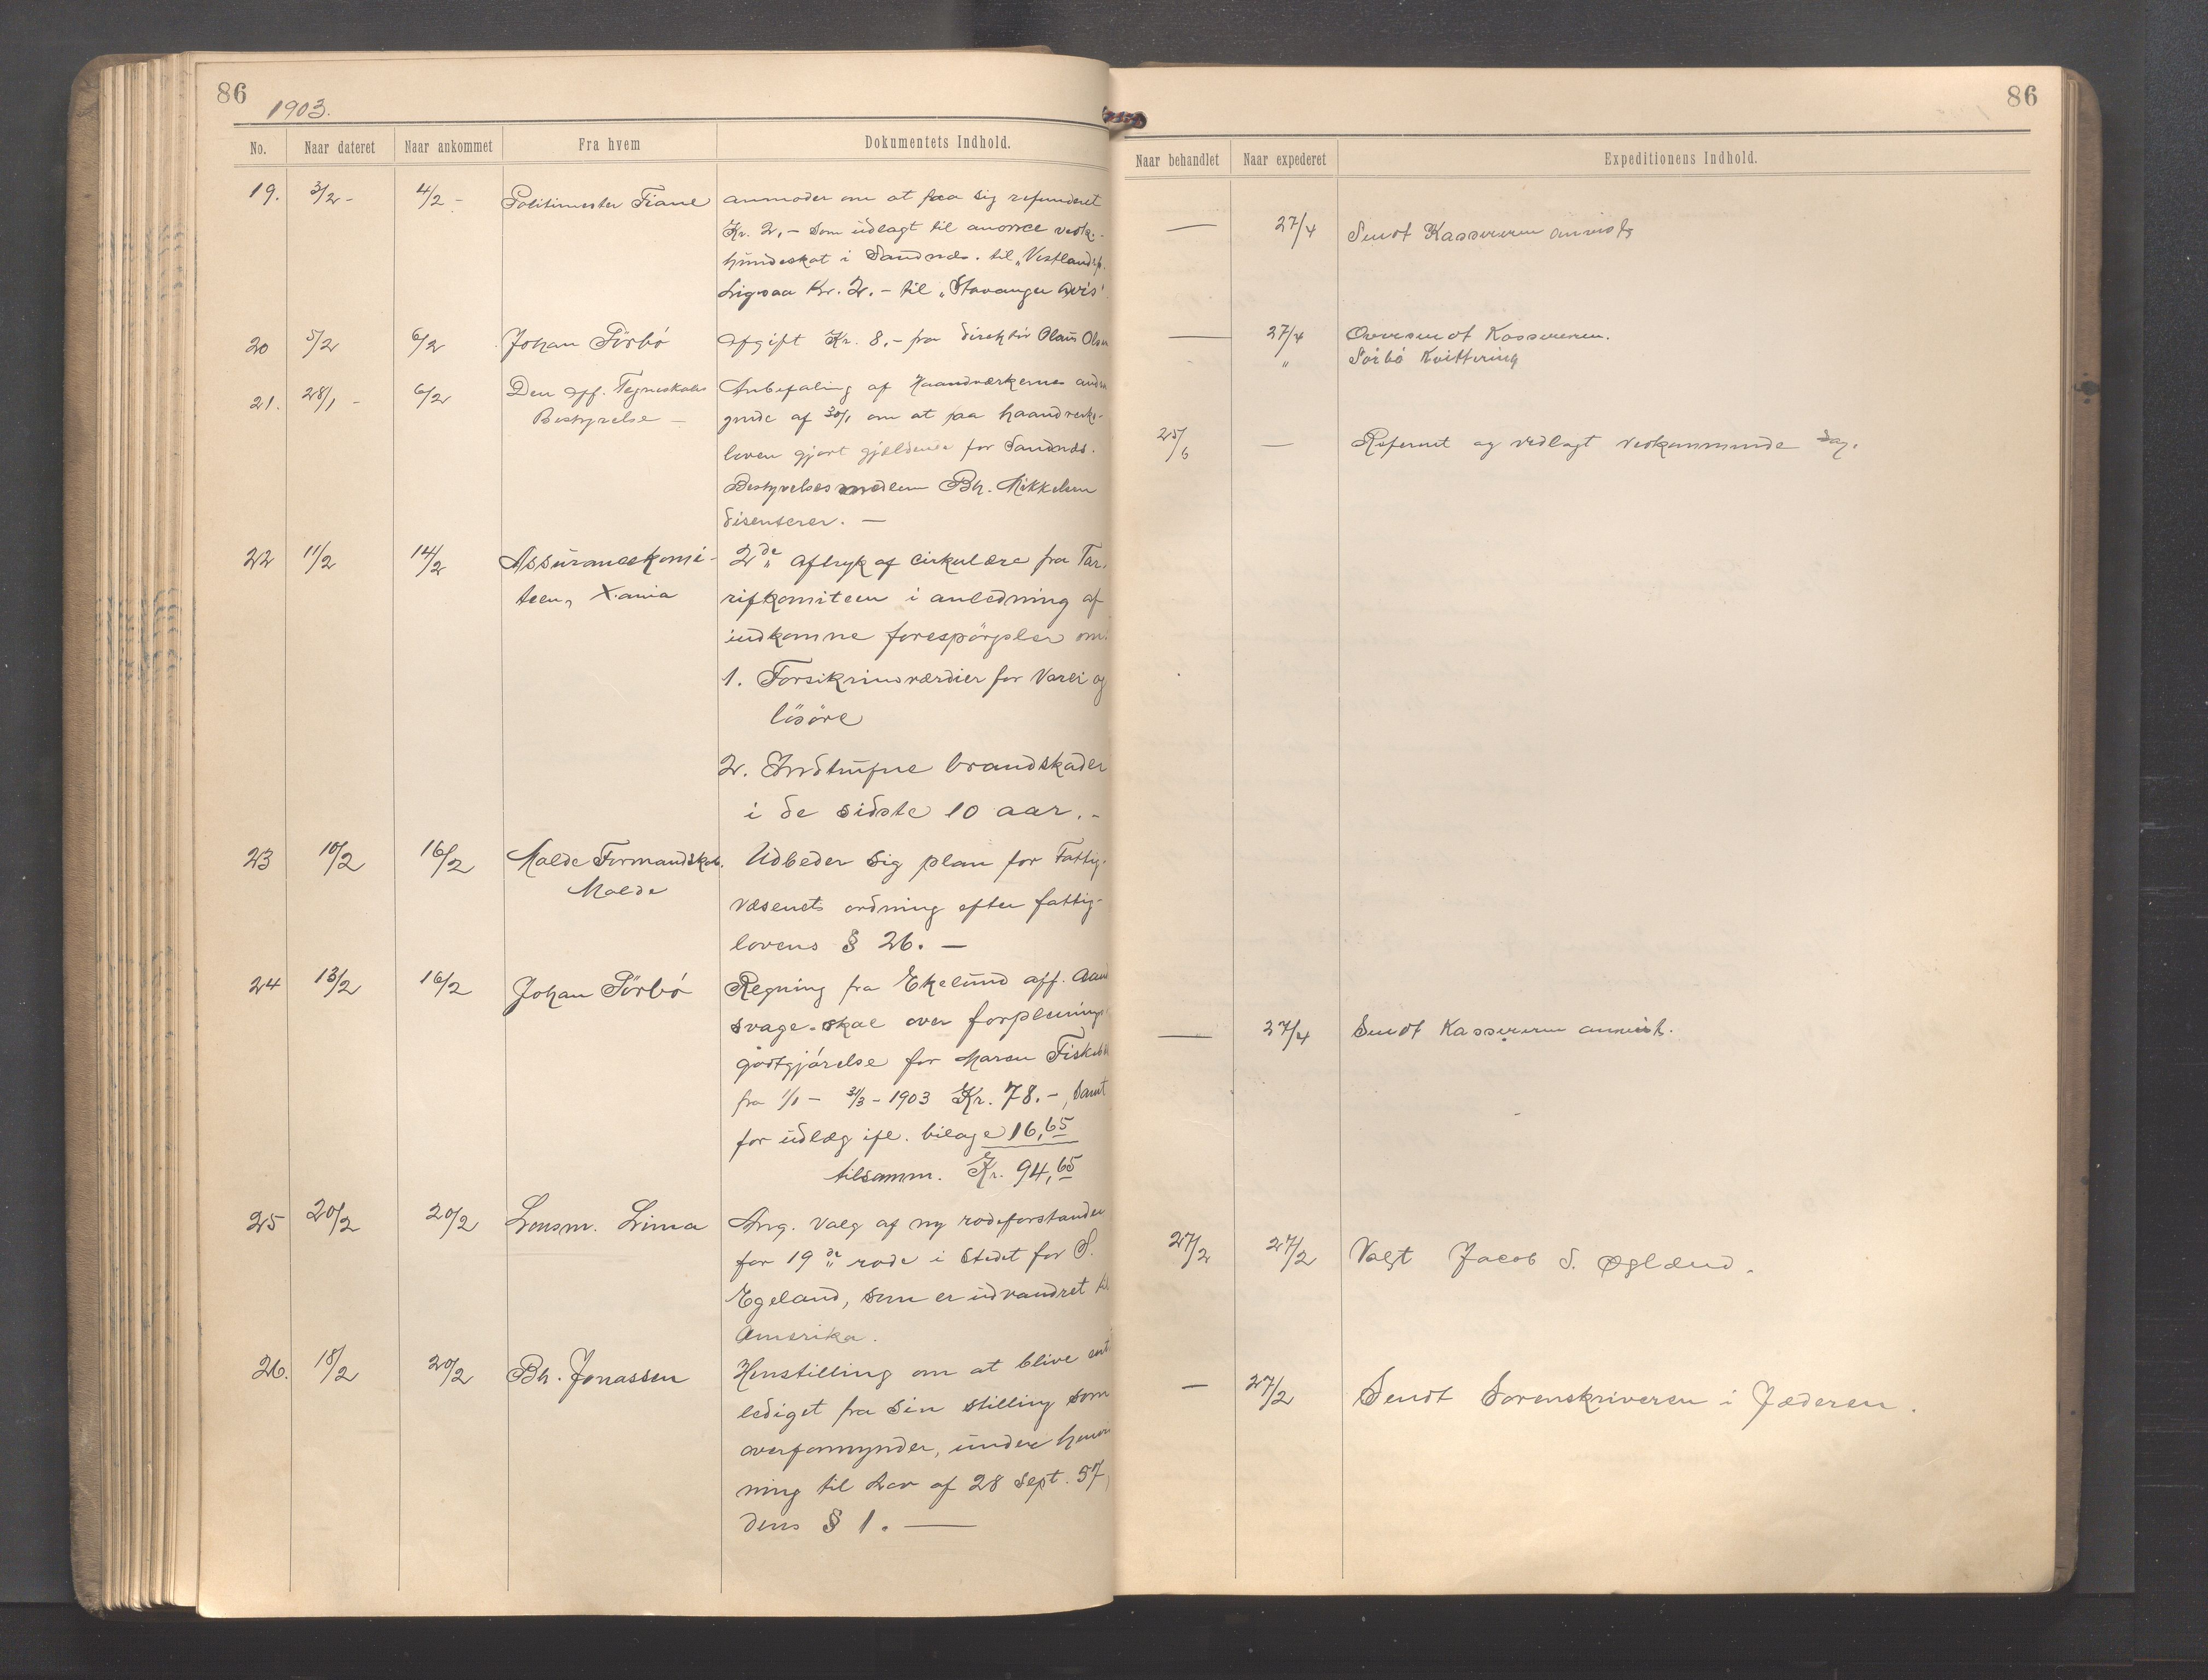 86
1903.
No.
Naar dateret
Naar ankommet
Fra hvem
Dokumentets Indhold.
19. 3/2 - 4/2 - Politimester Tiane anmoder om at faa sig refunderet
Kr. 2,- som udlagt til anonce vedk.
hundeskat i Sandnæs. til "Vestlandsp.
Ligesaa Kr. 2.- til "Stavanger Avis"
20 5/2 6/2 Johan Sörbö Afgift Kr. 8,- fra Direktör Olaus Olsen
21. 28/1 - 6/2 Den off. Tegneskoles Anbefaling af Haandværkernes andra
Bestyrelse - gende af 30/1 om at faa haandverks-
loven gjort gjældende for Sandnæs.
Bestyrelsesmedlem Bh. Mikkelsen
disenterer. -
22 11/2 14/2 Assürancekomi- 2de Aftryk af Cirkulære fra Tar-
teen, X.ania rifkomiteen i anledning af
indkomne forespörgsler om:
1. Forsikrinsværdier for Varer og
lösöre
2. Indtrufne brandskader
i de sidste 10 aar. -
23 10/2 16/2 Malde Formandskab. Udbeder sig plan for Fattig-
Malde væsenets ordning efter fattig-
lovens § 26. -
24 13/2 16/2 Johan Sörbö Regning fra Ekelund aff. Aand
svage-skole over forpleinings
godtgjörelse for Maren
fra 1/1 - 31/3 - 1903 Kr. 78.-, samt
for udlæg ifl. bilage 16,65
tilsamm. Kr. 94,65
25 20/2 20/2 Lensm. Lima Ang. Valg af ny rodeforstander
for 19de rode i Stedet for S.
Egeland, som er udvandret til
Amerika.
26. 18/2 20/2 Bh. Jonassen Henstilling om at blive ent
lediget fra Sin Stilling som
overformynder, under henvis
ning til Lov af 28 Sept. 57,
dens § 1. -
86
Naar behandlet
Naar expederet
Expeditionens Indhold.
- 27/4 Sendt Kassereren anvist
- 27/4 Oversendt Kassereren.
" Sörbö Kvittering
25/6 - Referert og vedlagt vedkommende Sag.
- 27/4 Sendt Kassereren anvist.
27/2 27/2 Valgt Jacob S. Øglænd.
- 27/2 Sendt Sorenskriveren i Jæderen.